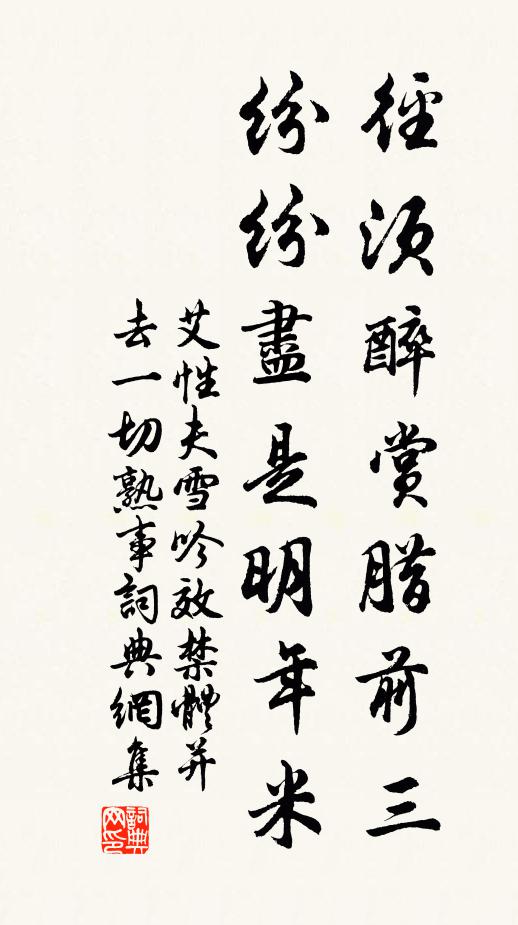 徑須醉賞腊前三
紛紛盡是明年米
艾性夫雪吟效禁體并
去一切熟事詞典網集
詞典网印